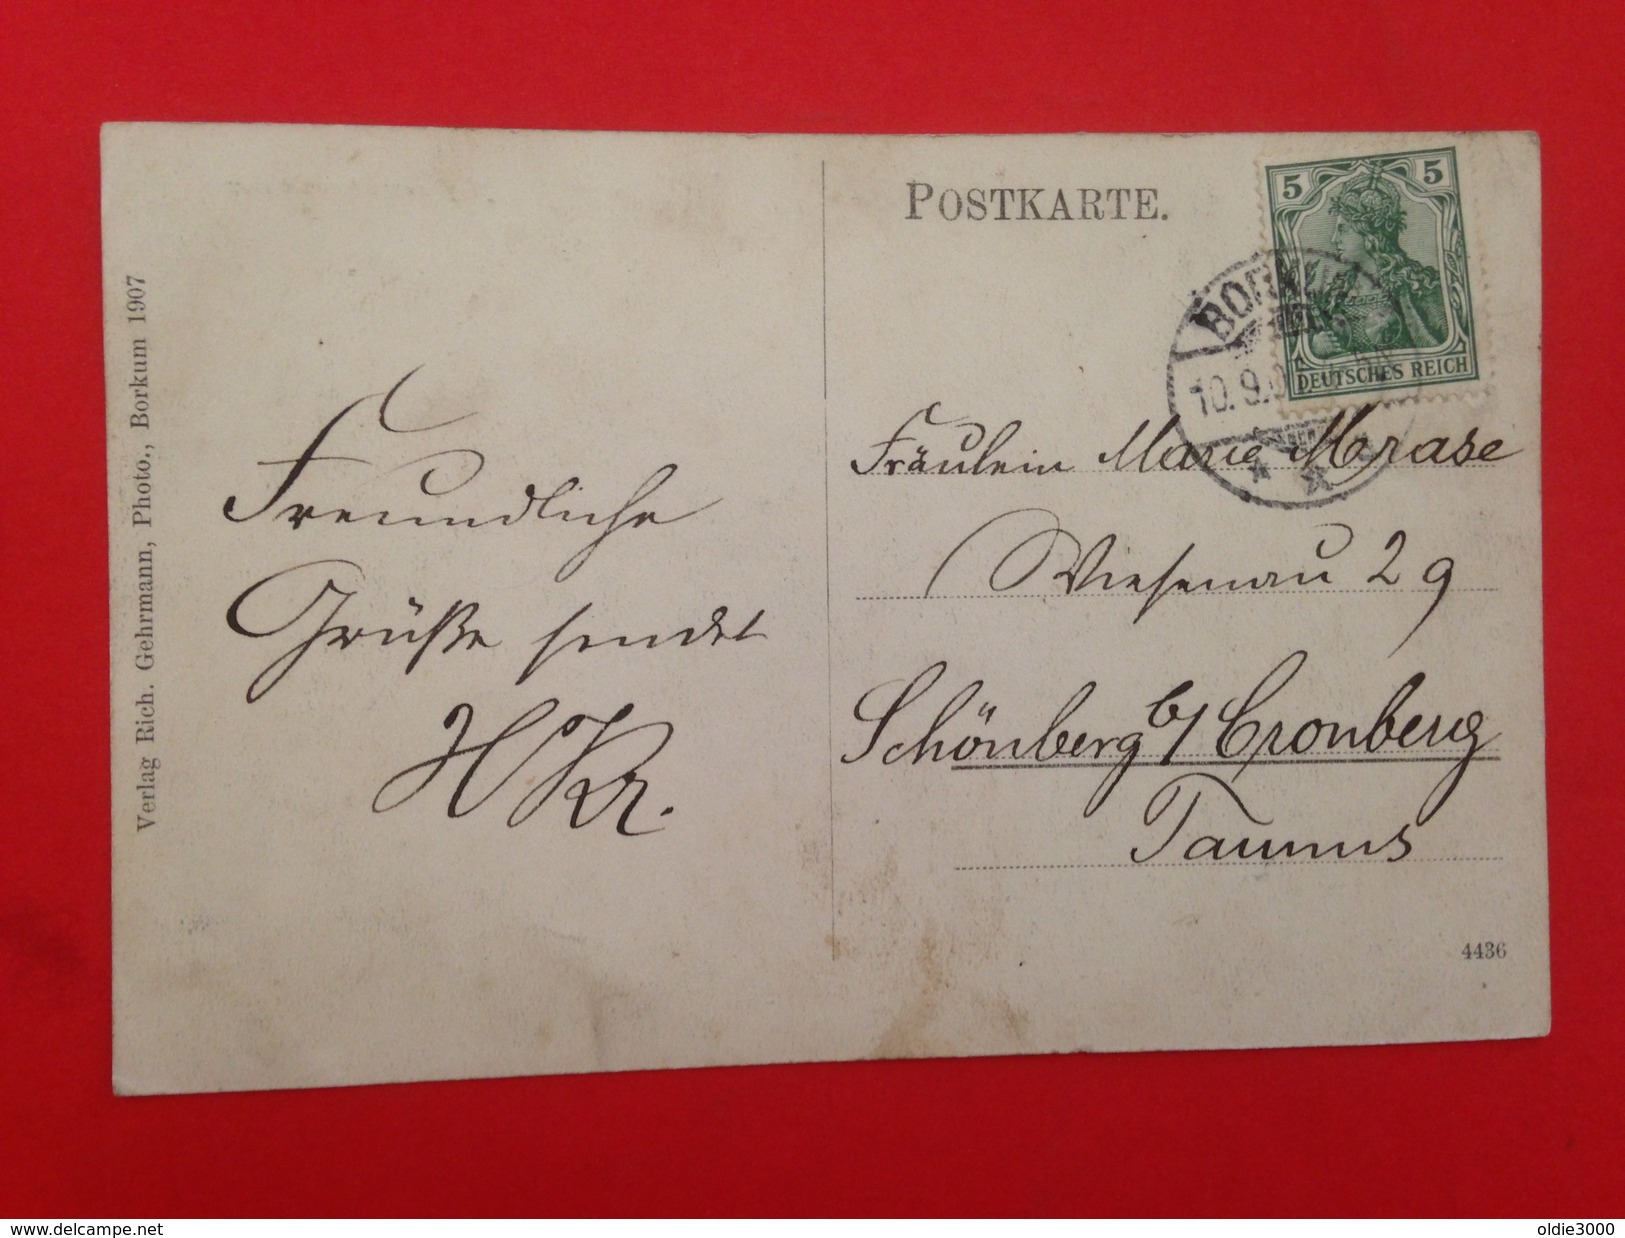 Verlag Rich. Gehrmann, Photo., Borkum 1907
Freundliche
Grüße sendet
HKr.
POSTKARTE.
5 5
DEUTSCHES REICH
BORKUM
10.9.0
Fräulein Marie Mrase
Wiesenau 29
Schönberg b/ Cronberg
Taunus
4436
www.delcampe.net
oldie3000